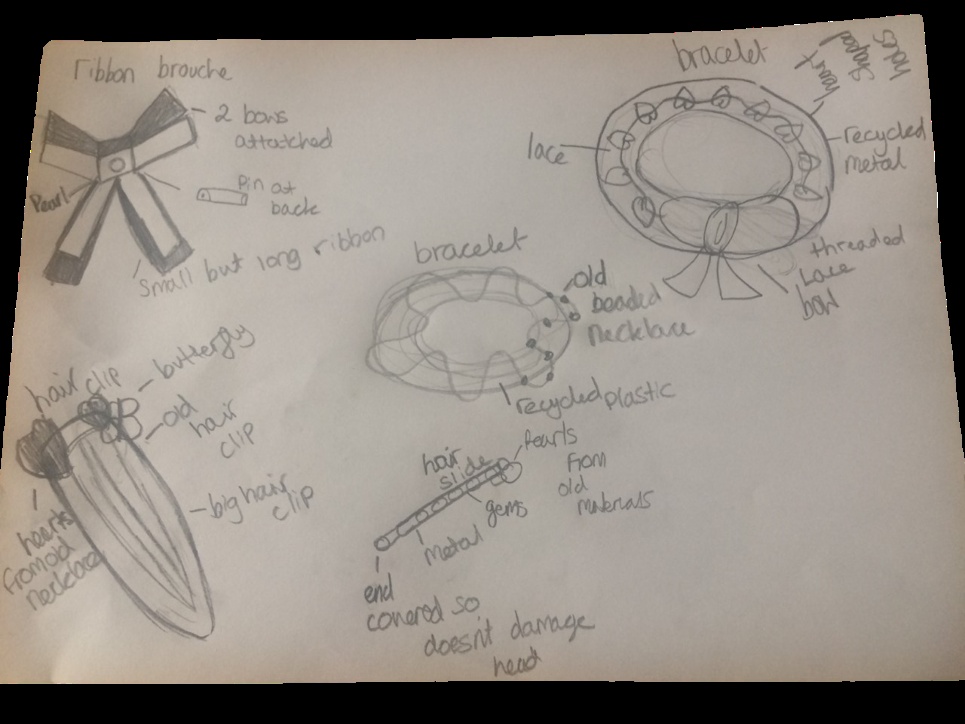 ribbon brouche
2 bows
attatched
Pearl
Pin at
back
Small but long ribbon
bracelet
heart
shaped
holes
lace
recycled
metal
threaded
Lace
bow
bracelet
old
beaded
necklace
recycled plastic
hair clip
butterfly
old
hair
clip
big hair
clip
hearts
from old
necklace
hair
slide
Pearls
from
old
materials
gems
metal
end
covered so
doesn't damage
head